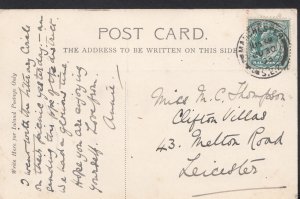 POST CARD.
THE ADDRESS TO BE WRITTEN ON THIS SIDE
Write Here for Inland Postage Only
I went with the Literary Cards
on their picnic yesterday, - am
sending this view of the district
We had a glorious time.
Hope you are enjoying
yourself. Love from
Annie
Miss M. C. Thompson
Clifton Villas
43. Melton Road
Leicester